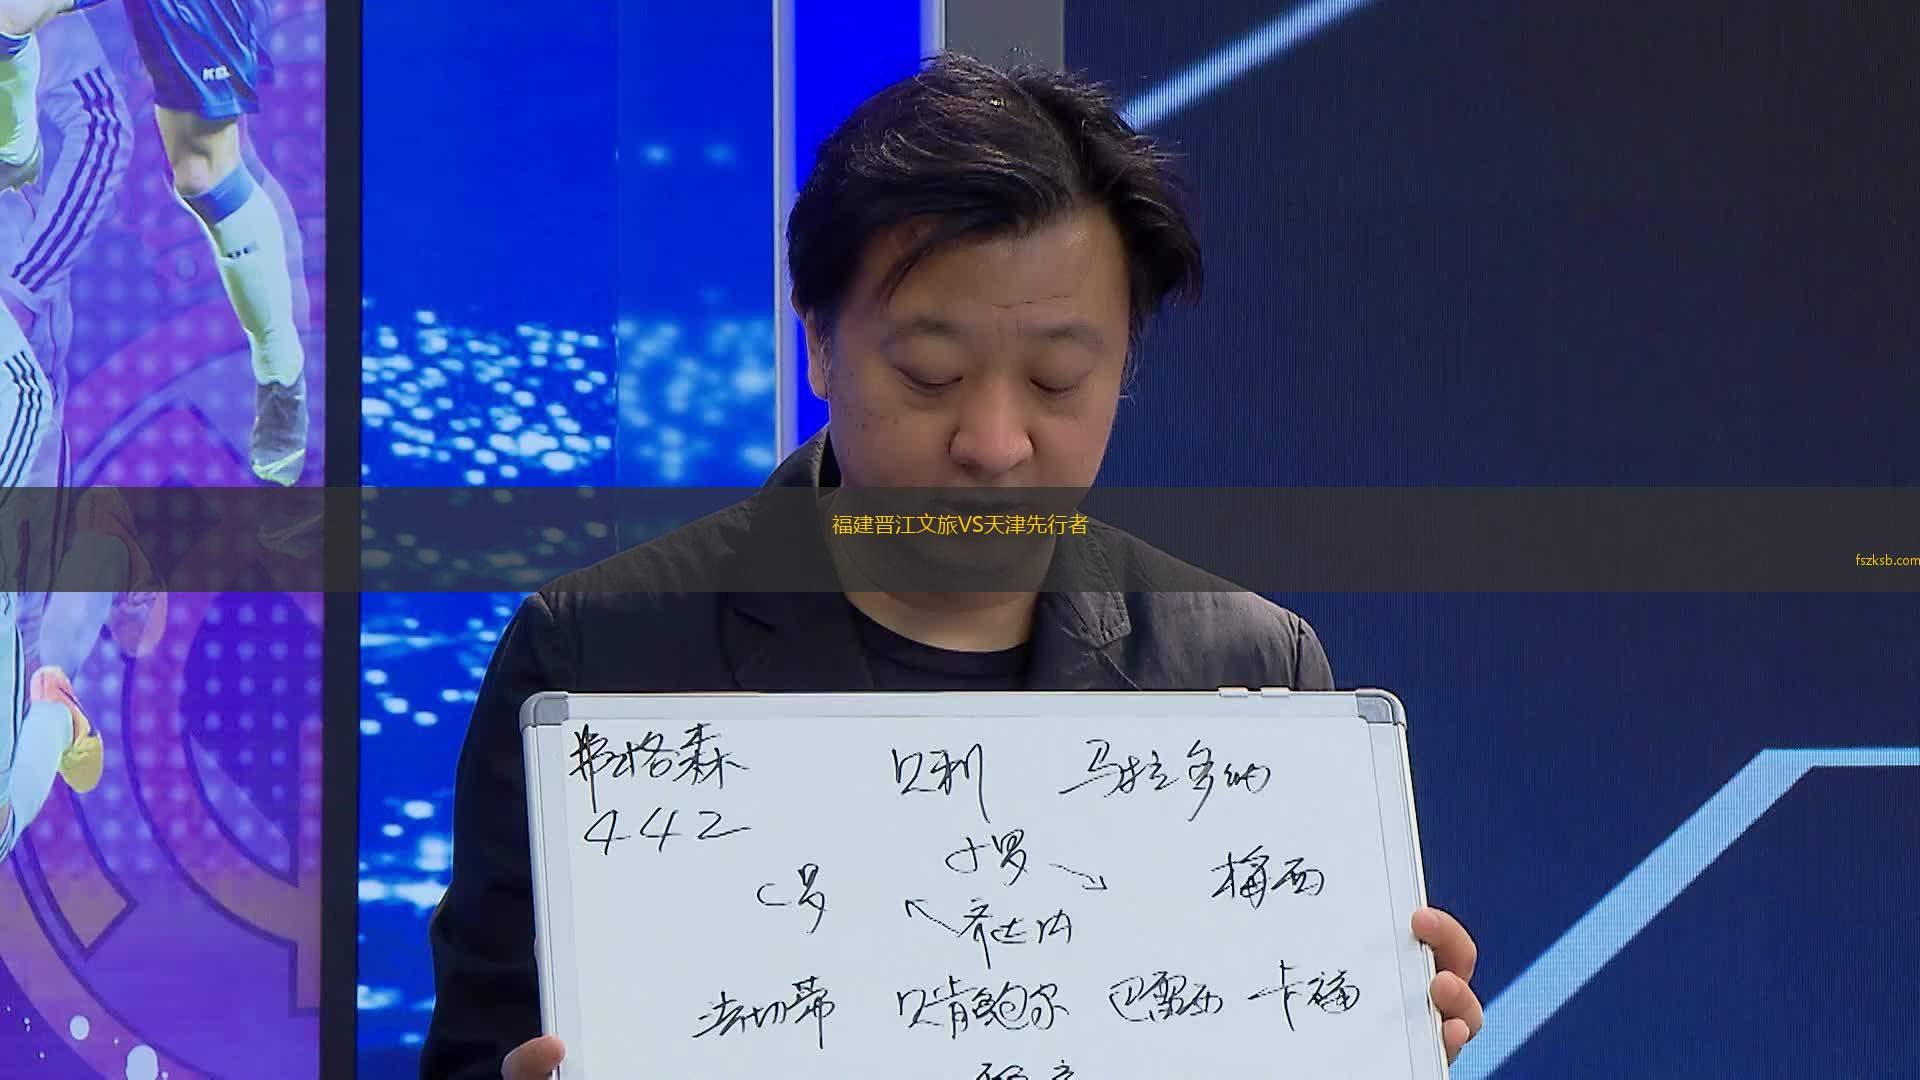 KEL
福建晋江文旅VS天津先行者
fszksb.com
弗格森 贝利 马拉多纳
442
小罗
C罗 梅西
齐达内
法切蒂 贝肯鲍尔 巴雷西 卡福